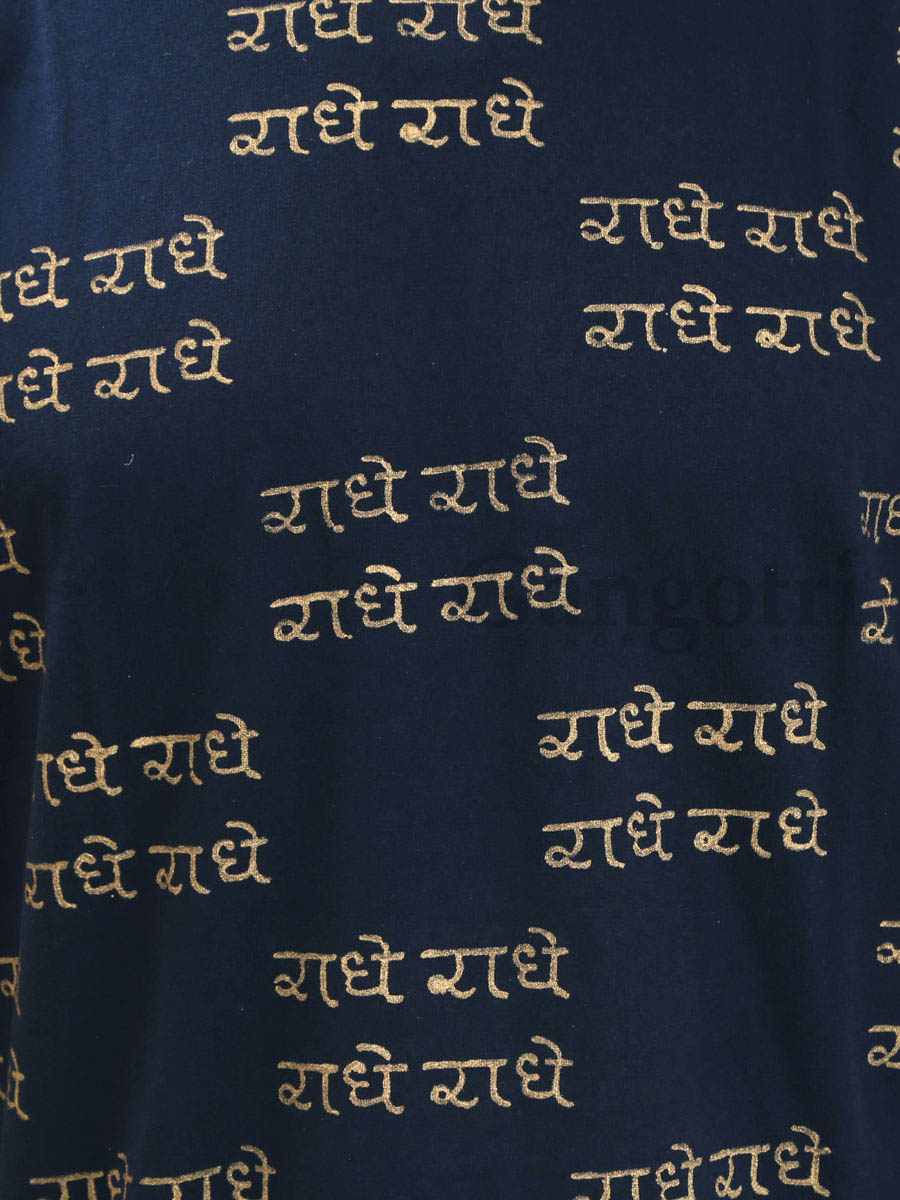 राधे राधे
राधे राधे
राधे राधे
राधे राधे
राधे राधे
राधे राधे
राधे राधे
राधे राधे
राधे राधे
Gangotri
राधे राधे
राधे राधे
राधे राधे
राधे राधे
राधे राधे
राधे राधे
राधे राधे
राधे राधे
राधे राधे